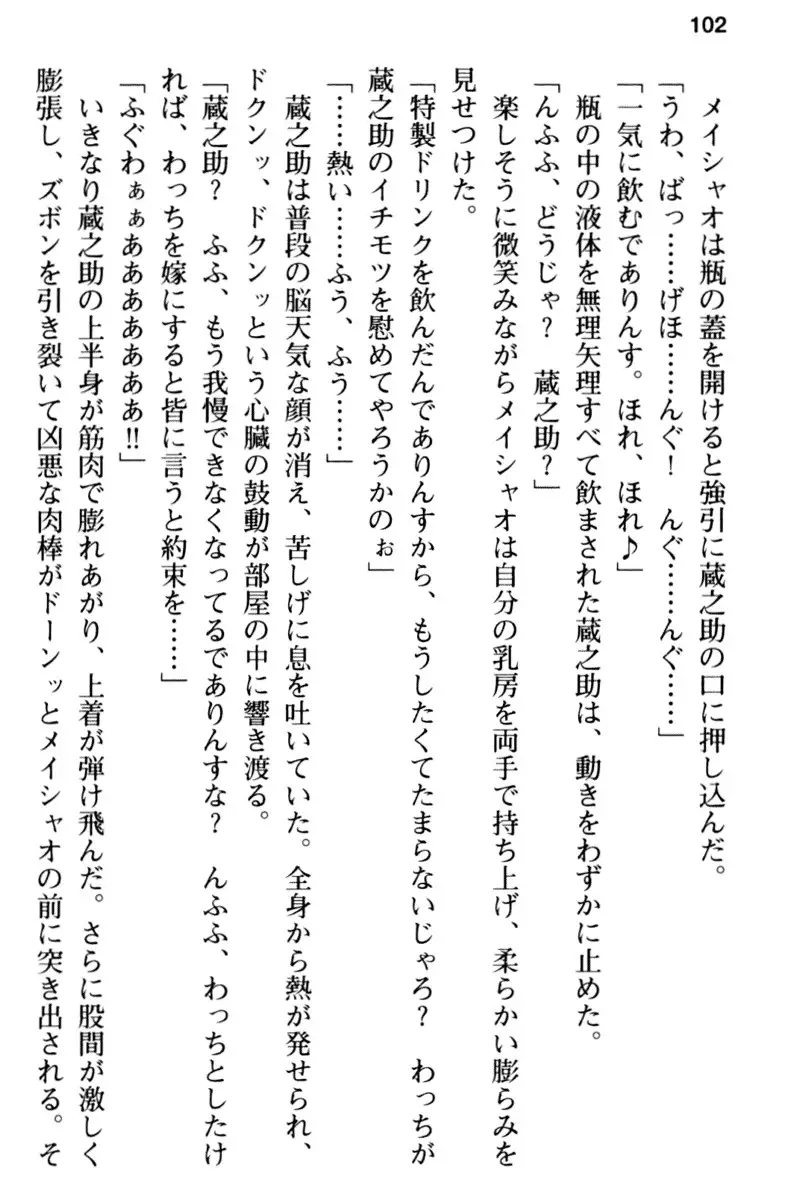 102
メイシャオは瓶の蓋を開けると強引に蔵之助の口に押し込んだ。
「うわ、ばっ……げほ……んぐ！　んぐ……んぐ……」
「一気に飲むでありんす。ほれ、ほれ♪」
瓶の中の液体を無理矢理すべて飲まされた蔵之助は、動きをわずかに止めた。
「んふふ、どうじゃ？　蔵之助？」
楽しそうに微笑みながらメイシャオは自分の乳房を両手で持ち上げ、柔らかい膨らみを
見せつけた。
「特製ドリンクを飲んだんでありんすから、もうしたくてたまらないじゃろ？　わっちが
蔵之助のイチモツを慰めてやろうかのぉ」
「……熱い……ふう、ふう……」
蔵之助は普段の脳天気な顔が消え、苦しげに息を吐いていた。全身から熱が発せられ、
ドクンッ、ドクンッという心臓の鼓動が部屋の中に響き渡る。
「蔵之助？　ふふ、もう我慢できなくなってるでありんすな？　んふふ、わっちとしたけ
れば、わっちを嫁にすると皆に言うと約束を……」
「ふぐわぁぁあああああああ!!」
いきなり蔵之助の上半身が筋肉で膨れあがり、上着が弾け飛んだ。さらに股間が激しく
膨張し、ズボンを引き裂いて凶悪な肉棒がドーンッとメイシャオの前に突き出される。そ